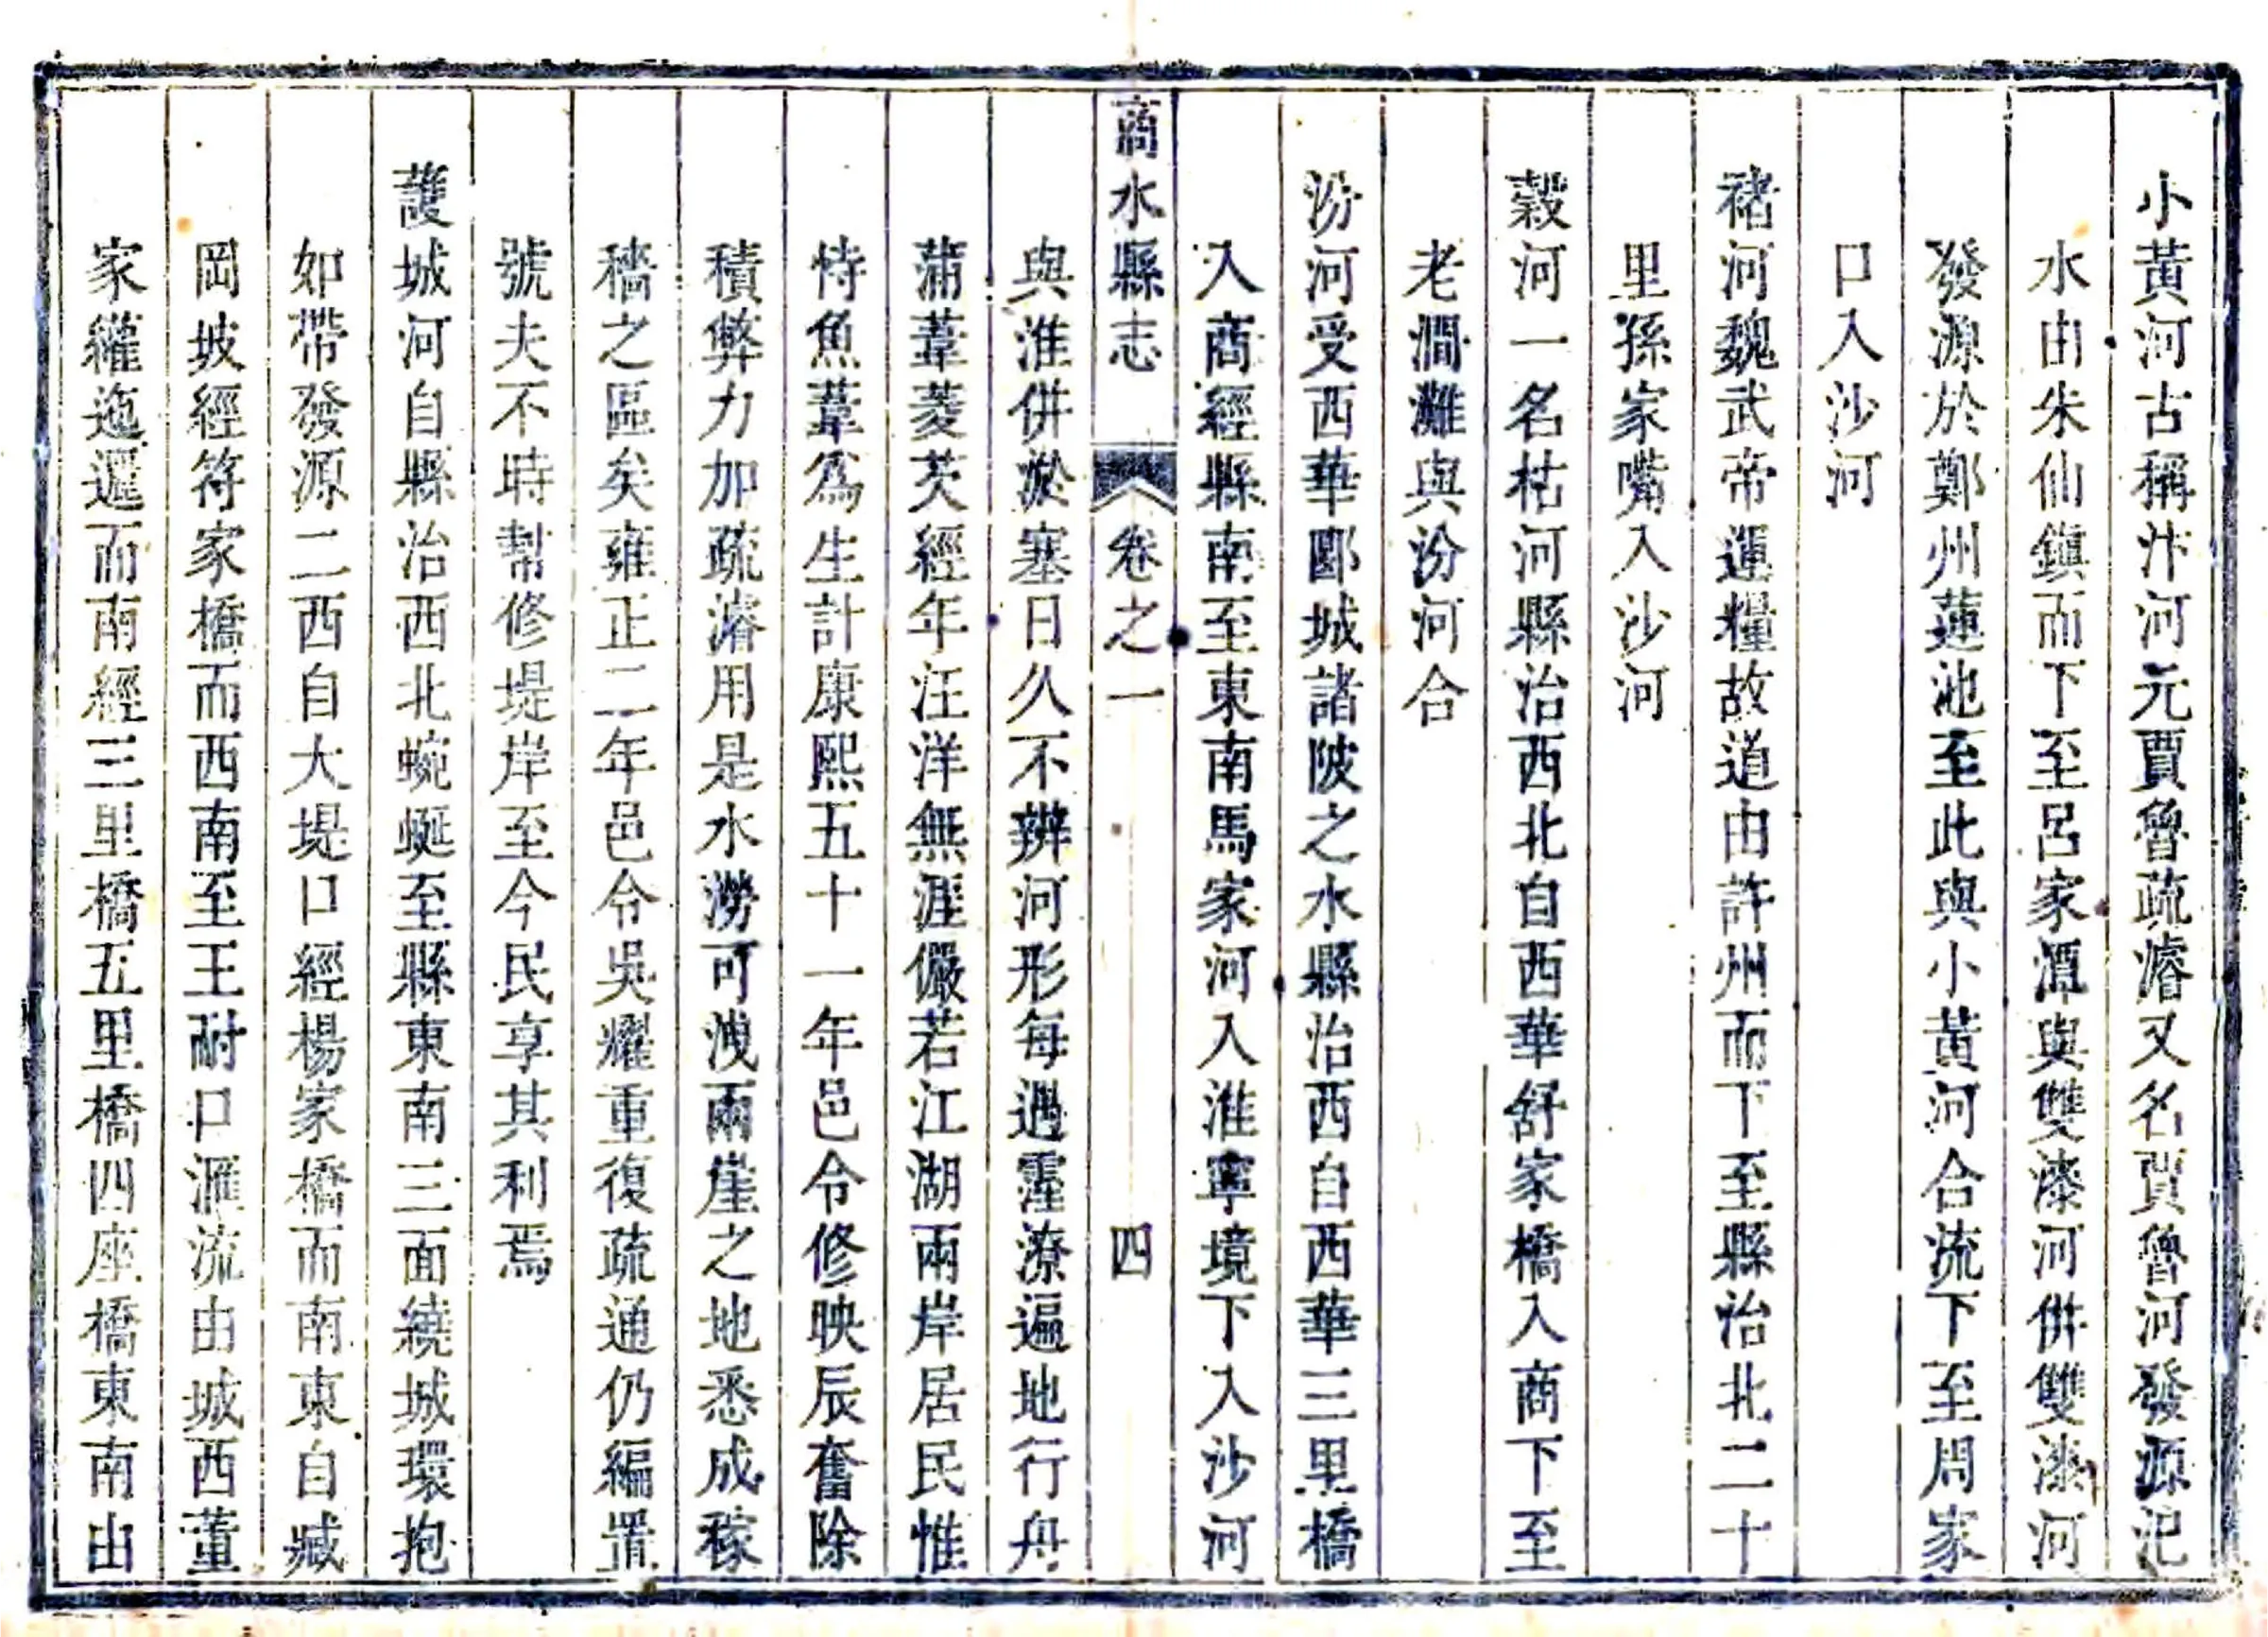 小黃河古稱汴河元賈魯疏濬又名賈魯河發源汜
水由朱仙鎮而下至呂家潭與雙洎河併雙洎河
發源於鄭州蓮池至此與小黃河合流下至周家
口入沙河
褚河魏武帝運糧故道由許州而下至縣治北二十
里孫家嘴入沙河
穀河一名枯河縣治西北自西華舒家橋入商下至
老澗灘與汾河合
汾河受西華郾城諸陂之水縣治西自西華三里橋
入商經縣南至東南馬家河入淮寧境下入沙河
商水縣志 卷之一 四
與淮併淤塞日久不辨河形每遇霪潦遍地行舟
蒲葦菱芡經年汪洋無涯儼若江湖兩岸居民惟
恃魚葦為生計康熙五十一年邑令修映辰奮除
積弊力加疏濬用是水澇可洩兩崖之地悉成稼
穡之區矣雍正二年邑令吳耀重復疏通仍編置
號夫不時幫修堤岸至今民享其利焉
護城河自縣治西北蜿蜒至縣東南三面繞城環抱
如帶發源二西自大堤口經楊家橋而南東自臧
岡坡經符家橋而西南至王耐口滙流由城西董
家䍦迤邐而南經三里橋五里橋四座橋東南由